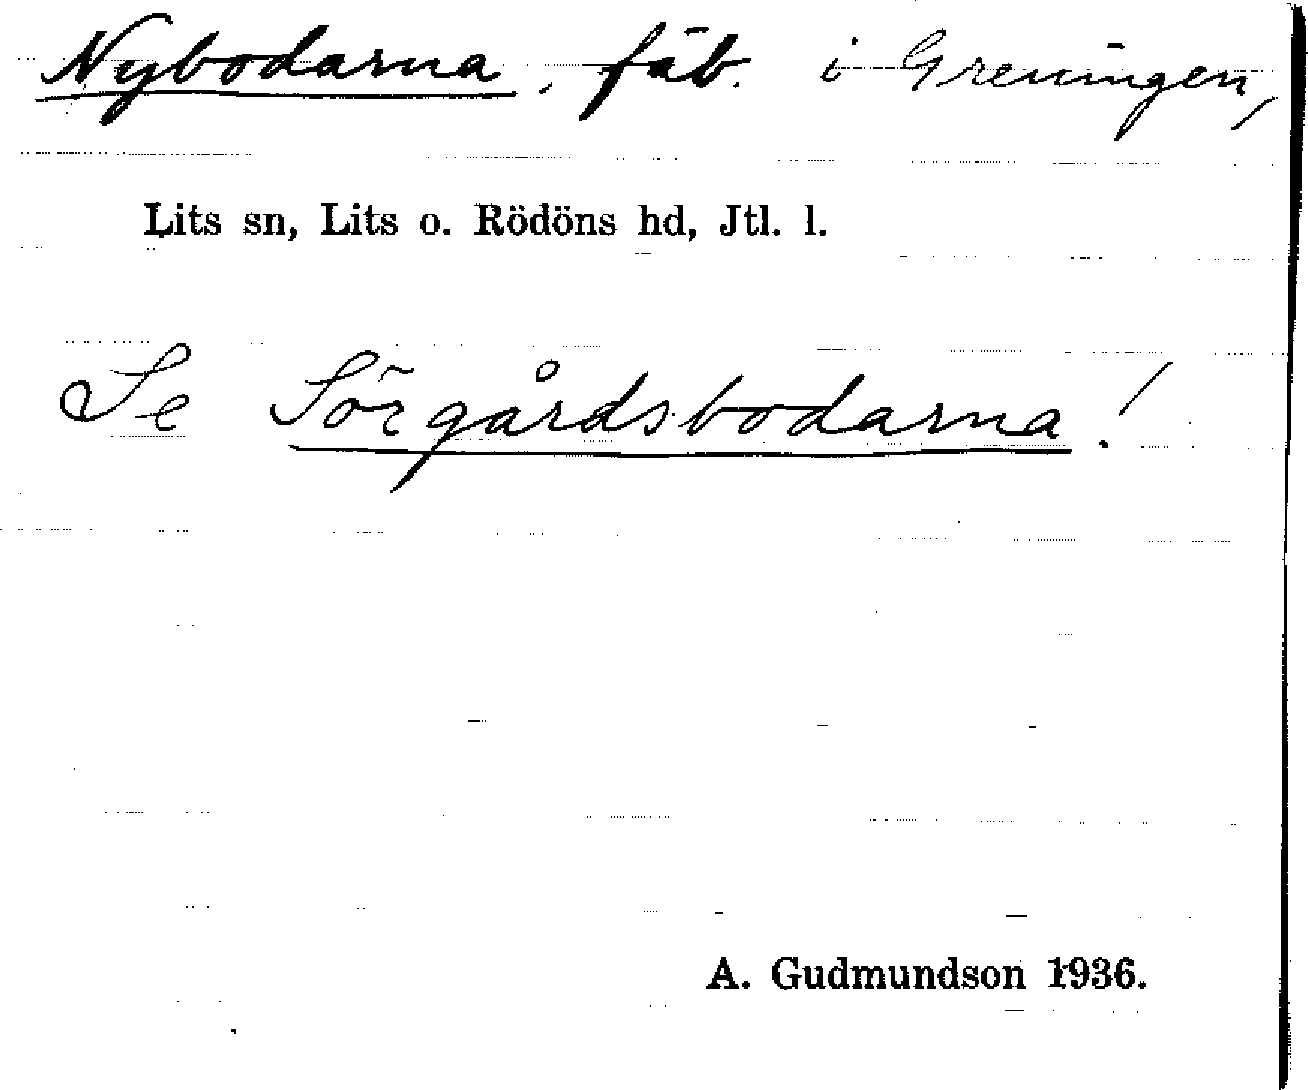 Nybodarna, fäb. i Greningen,
Lits sn, Lits o. Rödöns hd, Jtl. l.
Se Sörgårdsbodarna!
A. Gudmundson 1936.